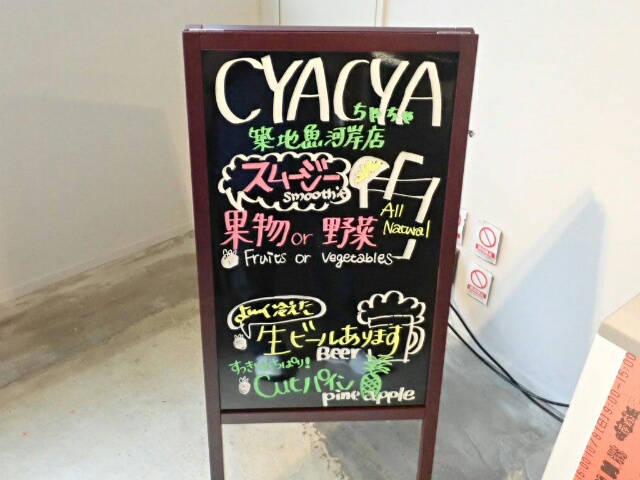 CYACYA
ちゃちゃ
築地魚河岸店
スムージー
smoothie
果物 or 野菜
All
Natural
Fruits or Vegetables
よーく冷えた
生ビールあります
Beer
すっきりさっぱり!
Cutパイン
pine apple